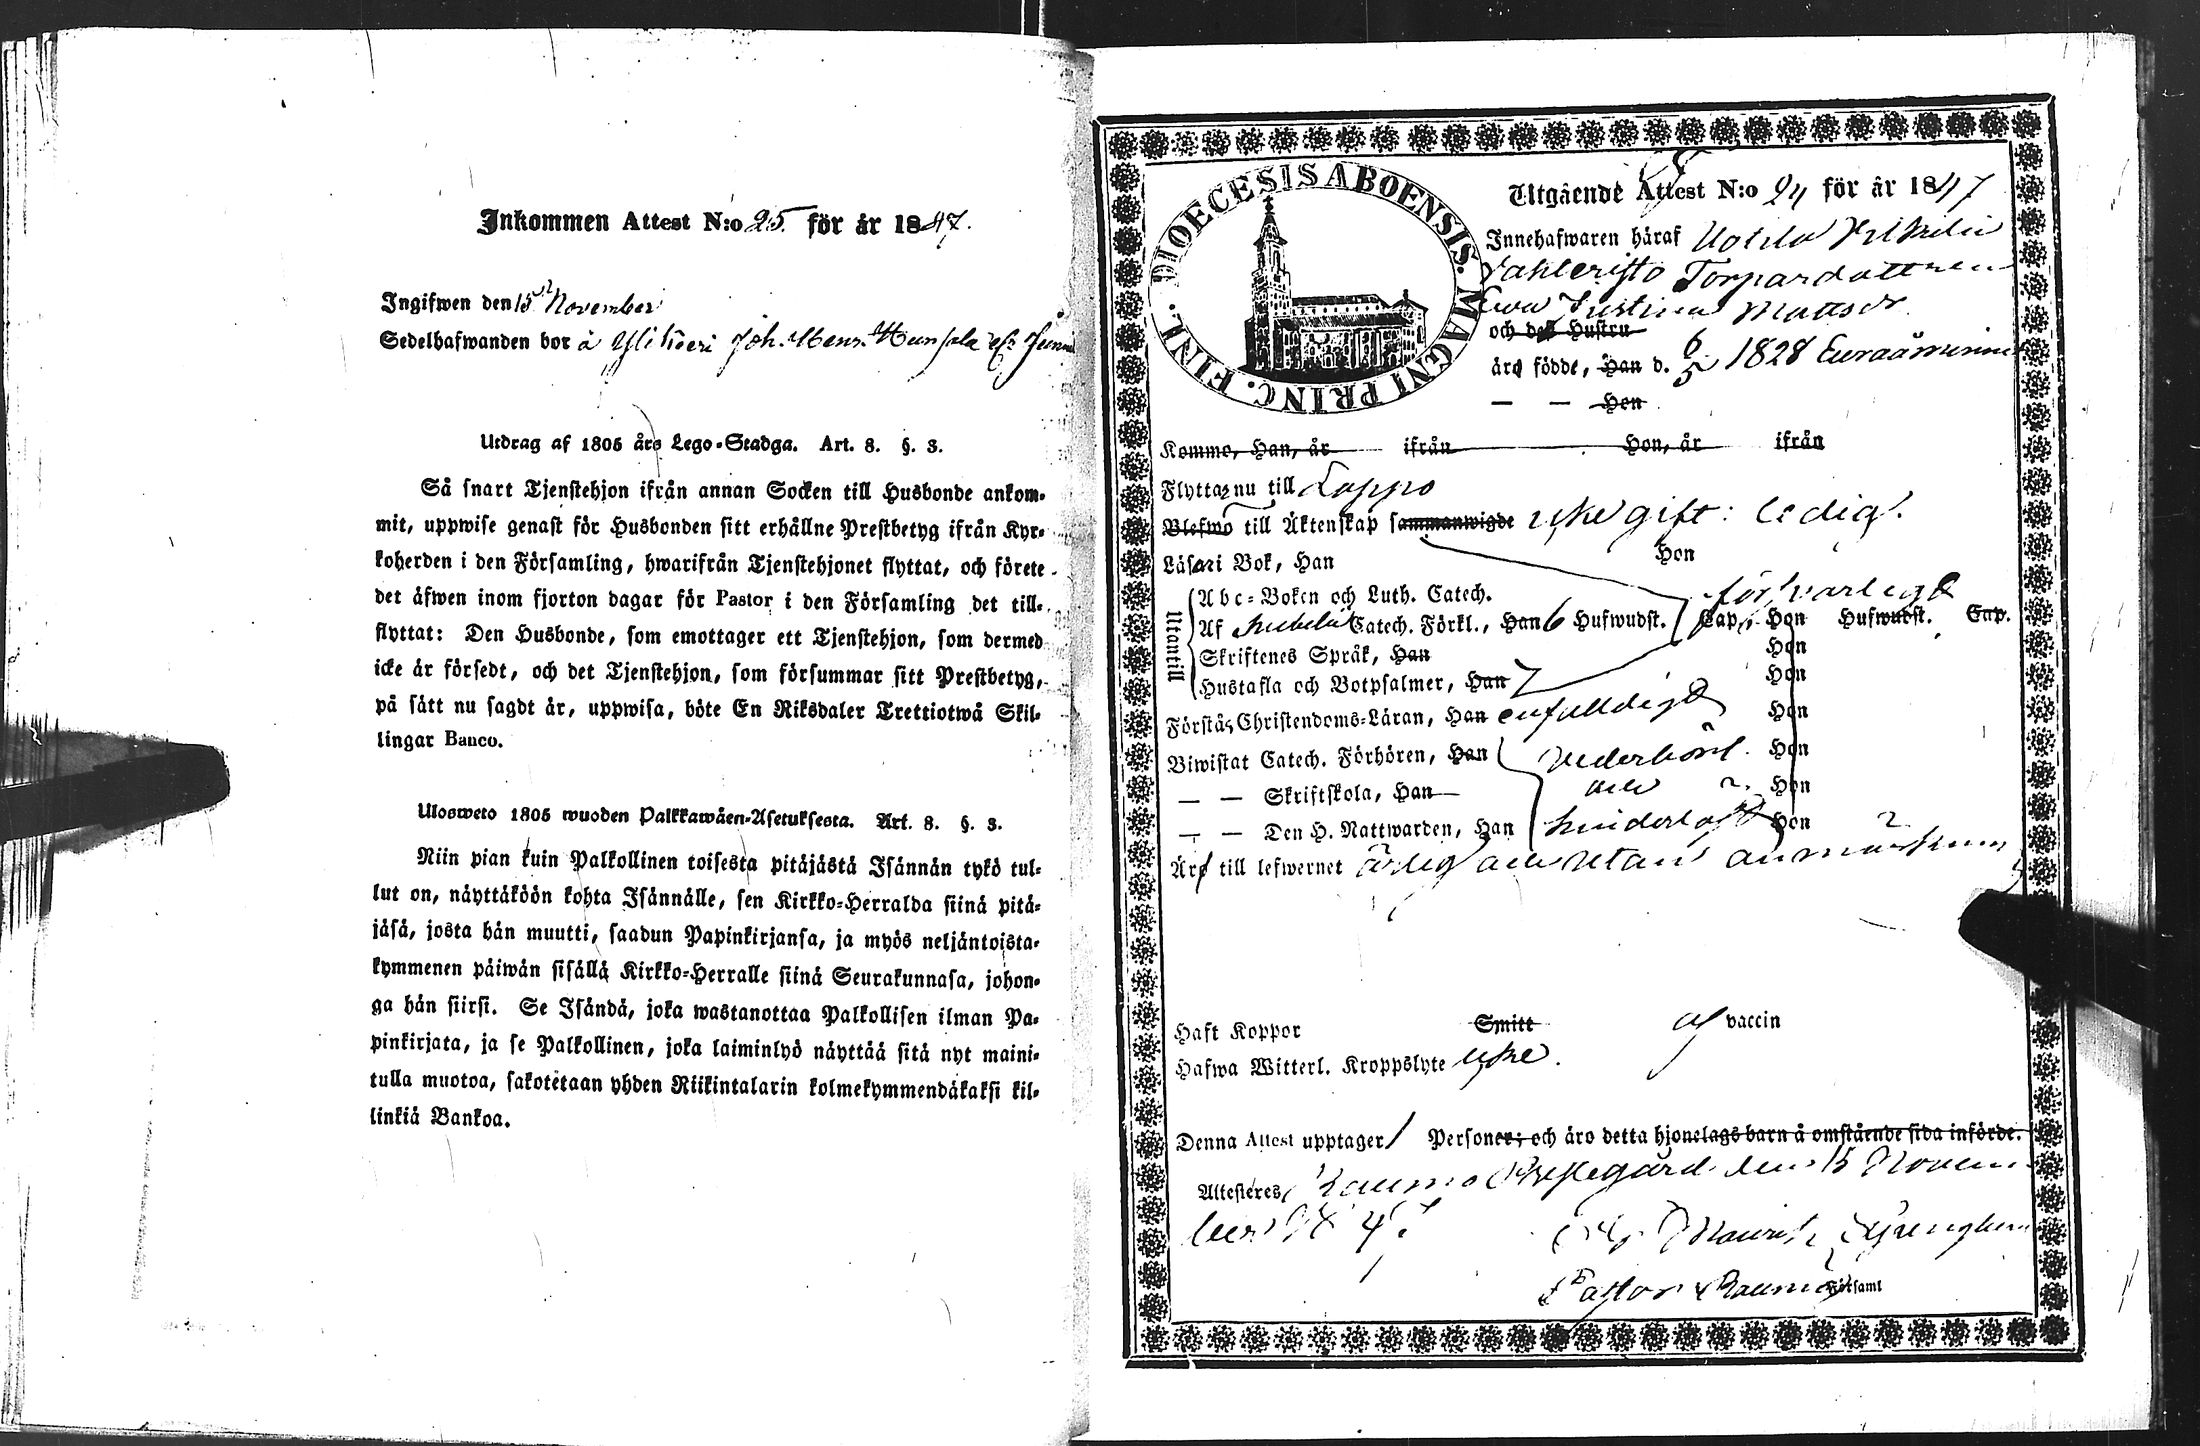 Inkommen Attest N:o 25. för år 1847.
Ingifwen den 15 November
Sedelhafwanden bor å Ylikieri Joh.
Utdrag af 1805 års Lego-Stadga. Art. 8. §. 3.
Så snart Tjenstehjon ifrån annan Socken till Husbonde ankom-
mit, uppwise genast för Husbonden sitt erhållne Prestbetyg ifrån Kyr-
koherden i den Församling, hwarifrån Tjenstehjonet flyttat, och förete
det äfwen inom fjorton dagar för Pastor i den Församling det till-
flyttat: Den Husbonde, som emottager ett Tjenstehjon, som dermed
icke är försedt, och det Tjenstehjon, som försummar sitt Prestbetyg,
på sätt nu sagdt är, uppwisa, böte En Riksdaler Trettiotwå Skil-
lingar Banco.
Ulosweto 1805 wuoden Palkkawäen-Asetuksesta. Art. 8. §. 3.
Niin pian kuin Palkollinen toisesta pitäjästä Isännän tykö tul-
lut on, näyttäköön kohta Isännälle, sen Kirkko-Herralda siinä pitä-
jäsä, josta hän muutti, saadun Papinkirjansa, ja myös neljäntoista-
kymmenen päiwän sisällä Kirkko-Herralle siinä Seurakunnasa, johon-
ga hän siirsi. Se Isändä, joka wastanottaa Palkollisen ilman Pa-
pinkirjata, ja se Palkollinen, joka laiminlyö näyttää sitä nyt maini-
tulla muotoa, sakotetaan yhden Riikintalarin kolmekymmendäkaksi kil-
linkiä Bankoa.
DIOECESIS ABOENSIS. MAGNI PRINC. FINL.
Utgående Attest N:o 24 för år 1847
Innehafwaren häraf
Torpardottren
Ewa Justina Mattsdr
och deß Hustru
äro födde, Han d. 6/5 1828 Euraåminne
— — Hon
Kommo, Han, år ifrån Hon, år ifrån
Flyttar nu till Lappo
Blefwo till Äktenskap sammanwigde icke gift: ledig.
Läsa i Bok, Han Hon
Utantill
Abc-Boken och Luth. Catech. försvarligt
Af Svebelii Catech. Förkl., Han 6 Hufwudst. Cap., Hon Hufwudst. Cap.
Skriftenes Språk, Han Hon
Hustafla och Botpsalmer, Han Hon
Förstår Christendoms-Läran, Han enfaldigt Hon
Biwistat Catech. Förhören, Han vederbörl. Hon
— — Skriftskola, Han och Hon
— — Den H. Nattwarden, Han hinderlöst Hon
Är till lefwernet ärlig och utan anmärkning
Haft Koppor Smitt af vaccin
Hafwa Witterl. Kroppslyte icke.
Denna Attest upptager 1 Personer; och äro detta hjonelags barn å omstående sida införde.
Attesteres, Raumo Prestegård den 15 Novem-
ber 1847.
Pastor i Raumo Församl